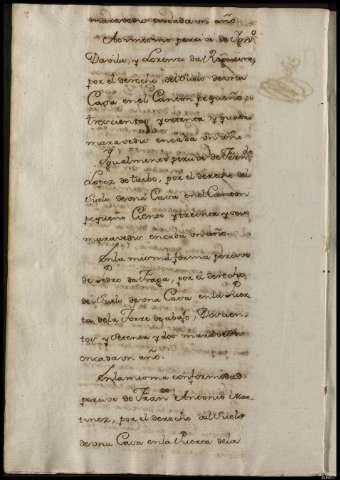 maravedis encada un año
Asimismo percive de Jph.
Davila, y Lorenzo de
por el derecho del suelo de una
Casa en el Canton pequeño
trescientos y ochenta y quatro
maravedis encada un año
Igualmente percive de
Lopez de por el derecho del
suelo de una Casa en el Canton
pequeño Ciento y treinta y
maravedis encada un año.
En la misma forma percive
de Pedro da Fraga, por el derecho
de suelo de una Casa en la Puer-
ta de la Torre de abajo, Doscien-
tos y setenta y dos maravedis
encada un año.
En la misma conformidad
percive de Fran.co Antonio Mar-
tinez, por el derecho del suelo
de una Casa en la Puerta de la